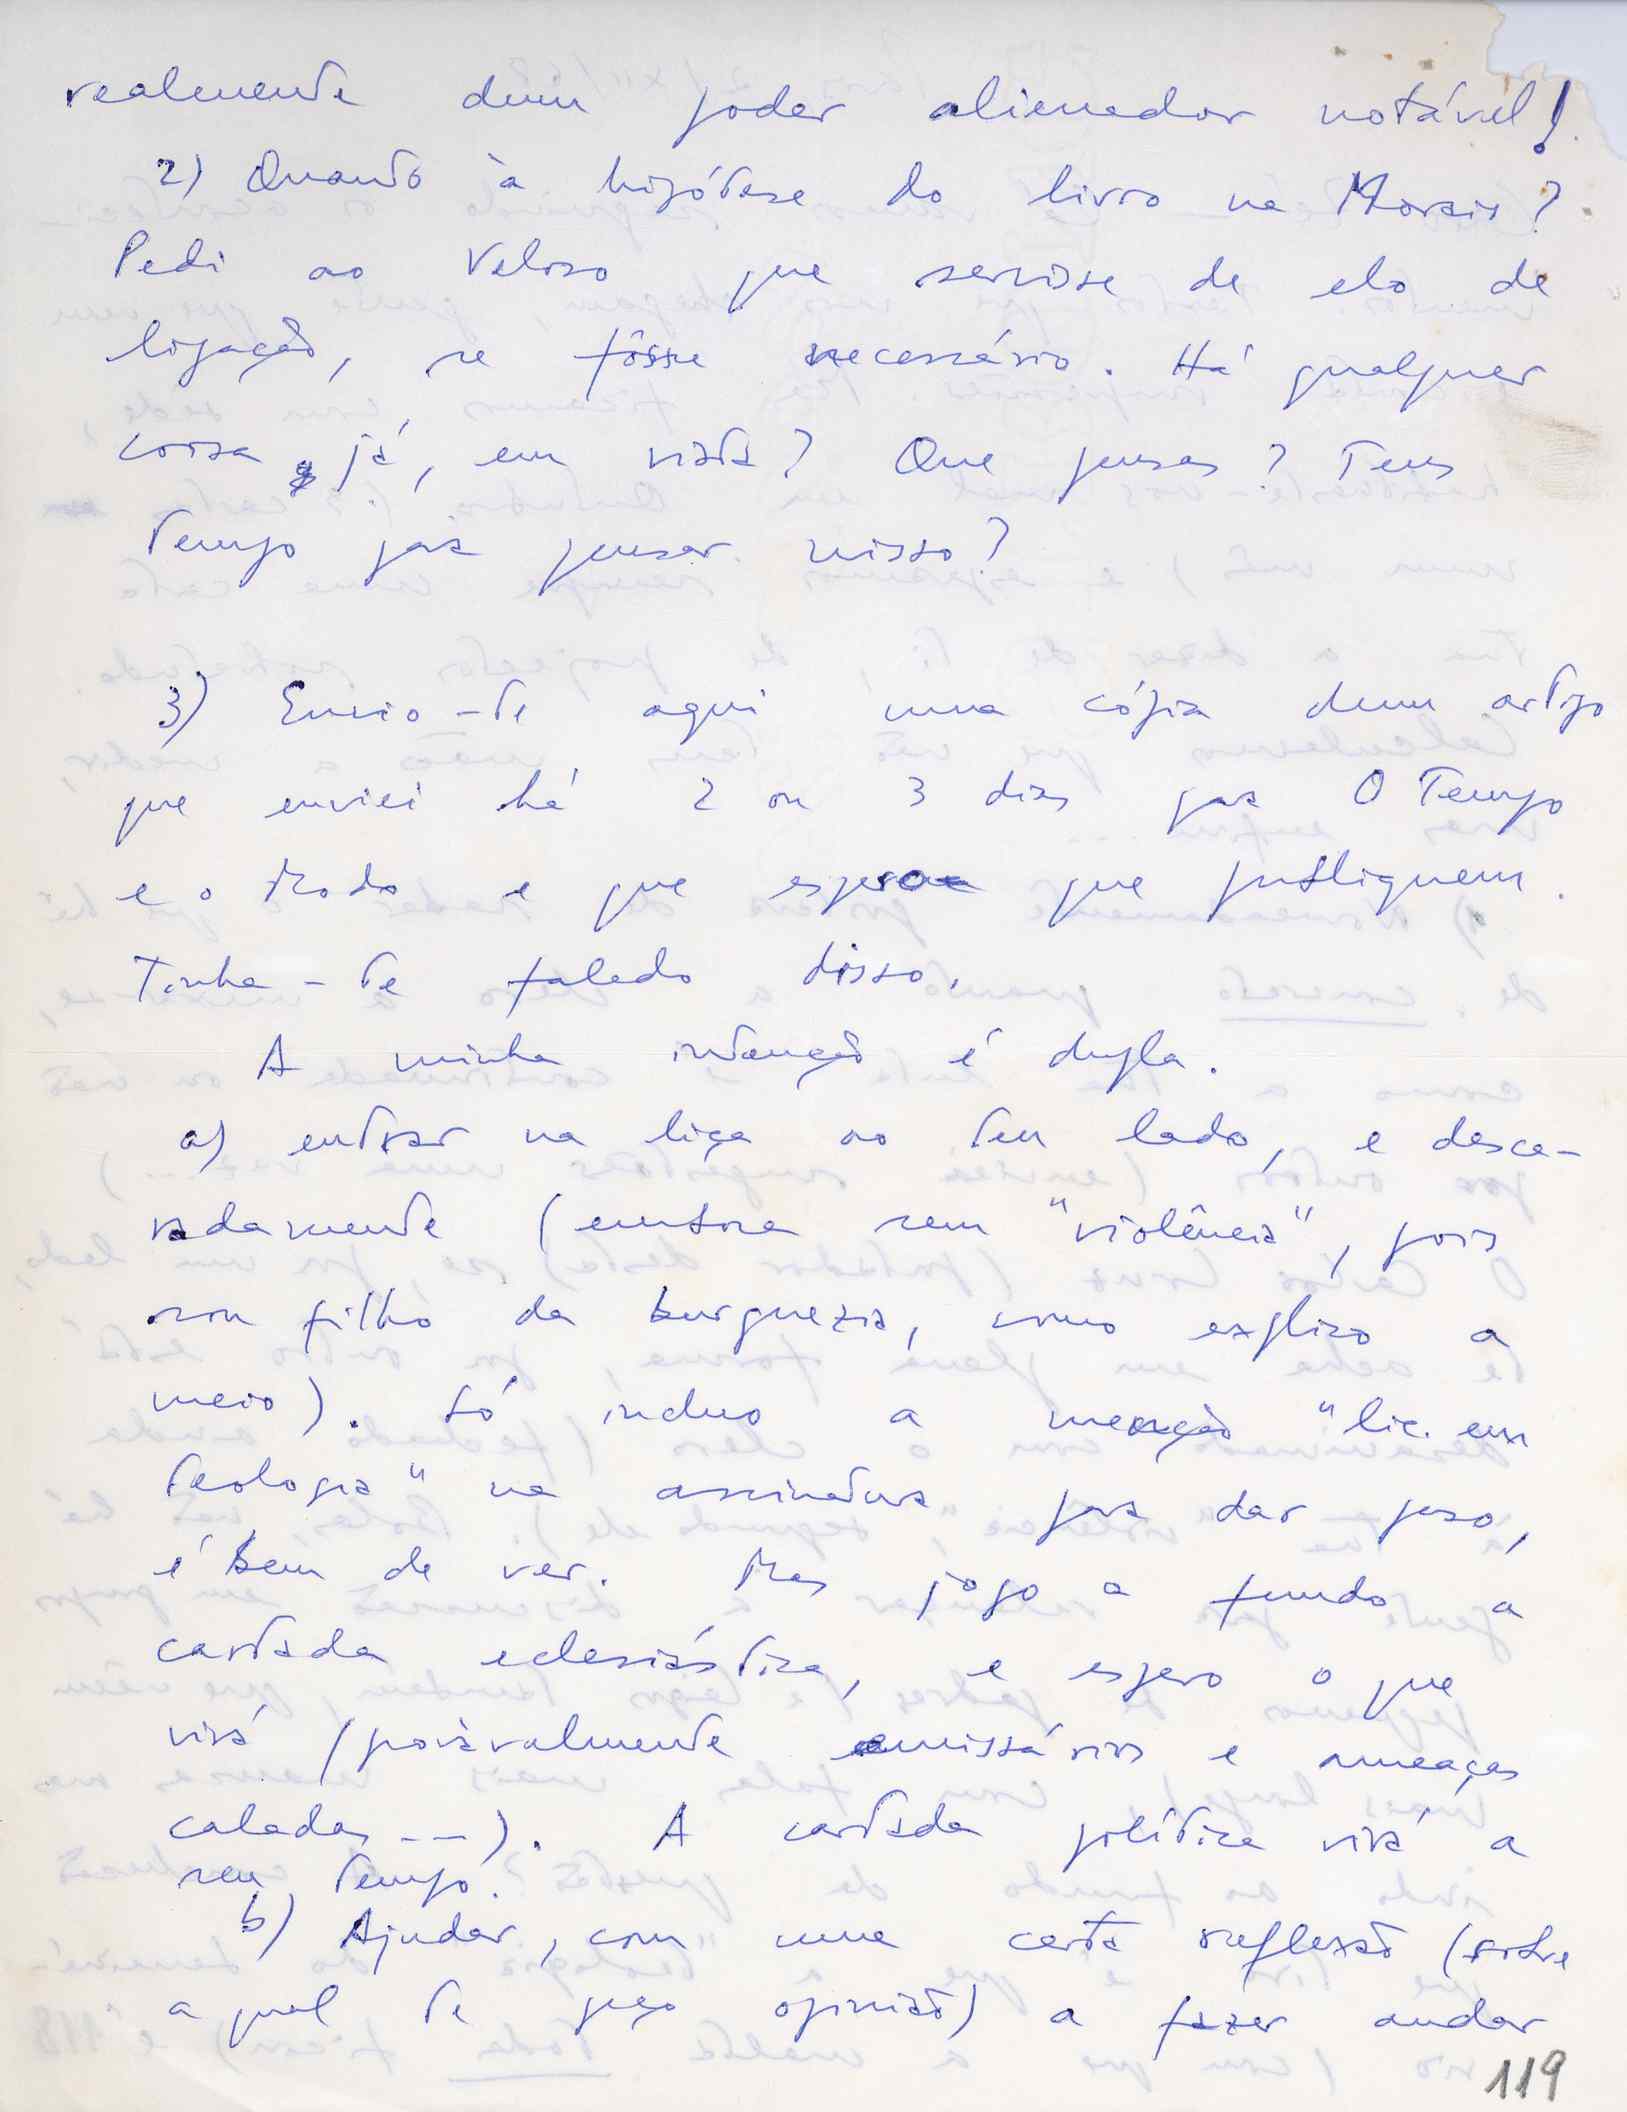 realmente dum poder alienador notável!
2) Quanto à hipótese do livro na Morais?
Pedi ao Veloso que servisse de elo de
ligação, se fôsse necessário. Há qualquer
coisa, já, em vista? Que pensas? Tens
tempo para pensar nisso?
3) Envio-te aqui uma cópia dum artigo
que enviei há 2 ou 3 dias para O Tempo
e o Modo e que espero que publiquem.
Tinha-te falado disso.
A minha intenção é dupla.
a) entrar na liça ao teu lado, e desca-
radamente (embora sem "violência", pois
sou filho da burguezia, como explico a
meio). Só incluo a menção "lic. em
teologia" na assinatura para dar peso,
é bem de ver. Mas jogo a fundo a
cartada eclesiástica, e espero o que
virá (provàvalmente emissários e ameaças
caladas --). A cartada política virá a
seu tempo.
b) Ajudar, com uma certa reflexão (sobre
a qual te peço opinião) a fazer andar
119